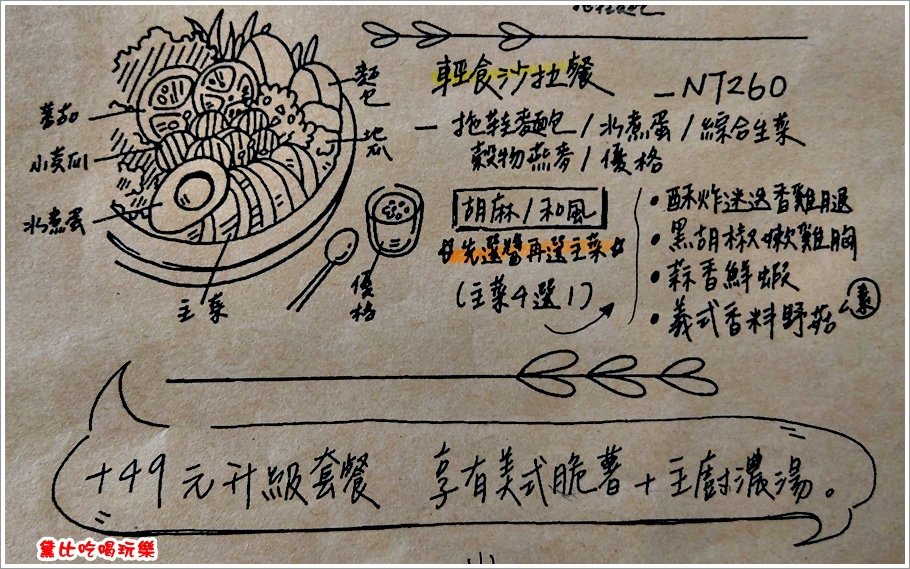 輕食沙拉餐 —NT260
— 拖鞋麵包/水煮蛋/綜合生菜
穀物燕麥/優格
胡麻/和風
先選醬再選主菜
(主菜4選1)
・酥炸迷迭香雞腿
・黑胡椒嫩雞胸
・蒜香鮮蝦
・義式香料野菇 素
麵包
地瓜
蕃茄
小黃瓜
水煮蛋
主菜
優格
+49元升級套餐 享有美式脆薯+主廚濃湯。
黛比吃喝玩樂